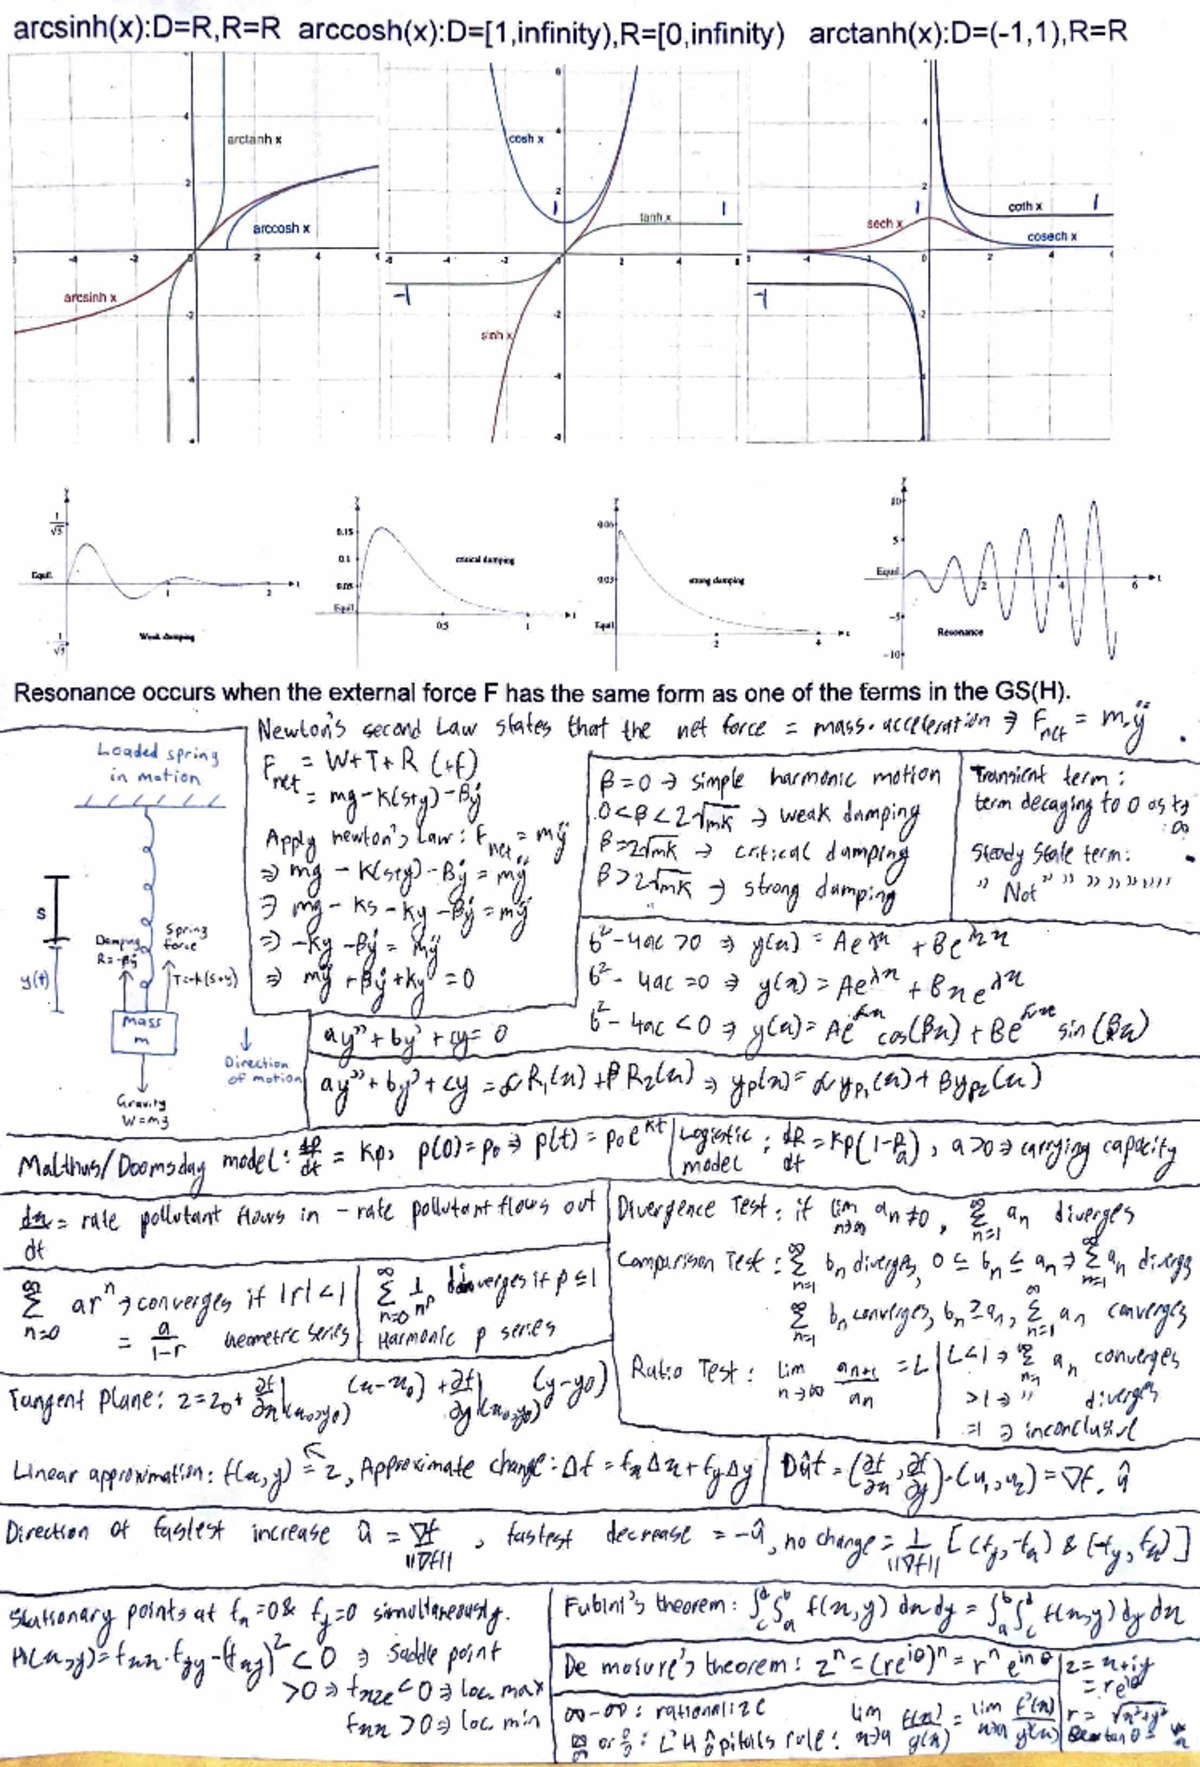 arcsinh(x):D=R,R=R arccosh(x):D=[1,infinity),R=[0,infinity) arctanh(x):D=(-1,1),R=R
arctanh x
arccosh x
arcsinh x
cosh x
tanh x
sinh x
1
1
-1
sech x
coth x
cosech x
1
1
-1
Equil
Weak damping
0.15
0.1
0.05
Equil
critical damping
0.5
1
0.05
Equil
strong damping
2
4
10
5
Equil
-5
-10
2
4
6
Resonance
Resonance occurs when the external force F has the same form as one of the terms in the GS(H).
Newton's second Law states that the net force = mass · acceleration ⇒ F_net = m ÿ
Loaded spring
in motion
S
y(t)
Damping
R=-βẏ
Spring
force
T=-k(s+y)
Mass
m
Gravity
W=mg
Direction
of motion
F_net = W+T+R (+f)
= mg-K(s+y)-βẏ
Apply newton's Law: F_net = mÿ
⇒ mg - K(s+y) - βẏ = mÿ
⇒ mg - ks - ky - βẏ = mÿ
⇒ -ky - βẏ = mÿ
⇒ mÿ + βẏ + ky = 0
β=0 → simple harmonic motion
0<β<2√mk → weak damping
β=2√mk → critical damping
β>2√mk → strong damping
Transient term:
term decaying to 0 as t→
∞
Steady State term:
" Not " " " " " "
b²-4ac >0 ⇒ y(x) = Ae^λ1x + Be^λ2x
b²-4ac =0 ⇒ y(x) = Ae^λx + Bxe^λx
b²-4ac <0 ⇒ y(x) = Ae^αx cos(βx) + Be^αx sin(βx)
ay''+by'+cy=0
ay''+by'+cy = αR₁(x) + βR₂(x) ⇒ yp(x) = αyp₁(x) + βyp₂(x)
Malthus/Doomsday model: dp/dt = kp, p(0)=p₀ ⇒ p(t)=p₀e^kt
Logistic model: dp/dt = kp(1-p/a), a>0 ⇒ carrying capacity
dx/dt = rate pollutant flows in - rate pollutant flows out
∑_{n=0}^∞ ar^n → converges if |r|<1
= a/(1-r) Geometric series
∑_{n=0}^∞ 1/n^p diverges if p≤1
Harmonic p series
Divergence Test: if lim_{n→∞} a_n ≠ 0, ∑_{n=1}^∞ a_n diverges
Comparison Test: ∑_{n=1}^∞ b_n diverges, 0 ≤ b_n ≤ a_n ⇒ ∑_{n=1}^∞ a_n diverges
∑_{n=1}^∞ b_n converges, b_n ≥ a_n, ∑_{n=1}^∞ a_n converges
Ratio Test: lim_{n→∞} a_{n+1}/a_n = L
L<1 ⇒ ∑_{n=1}^∞ a_n converges
>1 ⇒ " diverges
=1 ⇒ inconclusive
Tangent Plane: z=z₀+ ∂f/∂x|(x₀,y₀) (x-x₀) + ∂f/∂y|(x₀,y₀) (y-y₀)
Linear approximation: f(x,y) = z, Approximate change: Δf = fxΔx+fyΔy
Dûf = (∂f/∂x, ∂f/∂y)·(u₁,u₂) = ∇f.û
Direction of fastest increase û = ∇f/||∇f||, fastest decrease = -û, no change = 1/||∇f|| [(fy,-fx) & (-fy,fx)]
Stationary points at fx=0 & fy=0 simultaneously.
H(x,y)=fxx.fyy-(fxy)² <0 ⇒ saddle point
>0 ⇒ fxx<0 ⇒ loc. max
fxx>0 ⇒ loc. min
Fubini's theorem: ∫_c^d∫_a^b f(x,y) dx dy = ∫_a^b∫_c^d f(x,y) dy dx
De moivre's theorem: z^n = (re^iθ)^n = r^n e^inθ
z=x+iy
=re^iθ
r=√x²+y²
tanθ = y/x
∞-∞: rationalize
∞/∞ or 0/0: L'Hôpitals rule: lim_{x→a} f(x)/g(x) = lim_{x→a} f'(x)/g'(x)